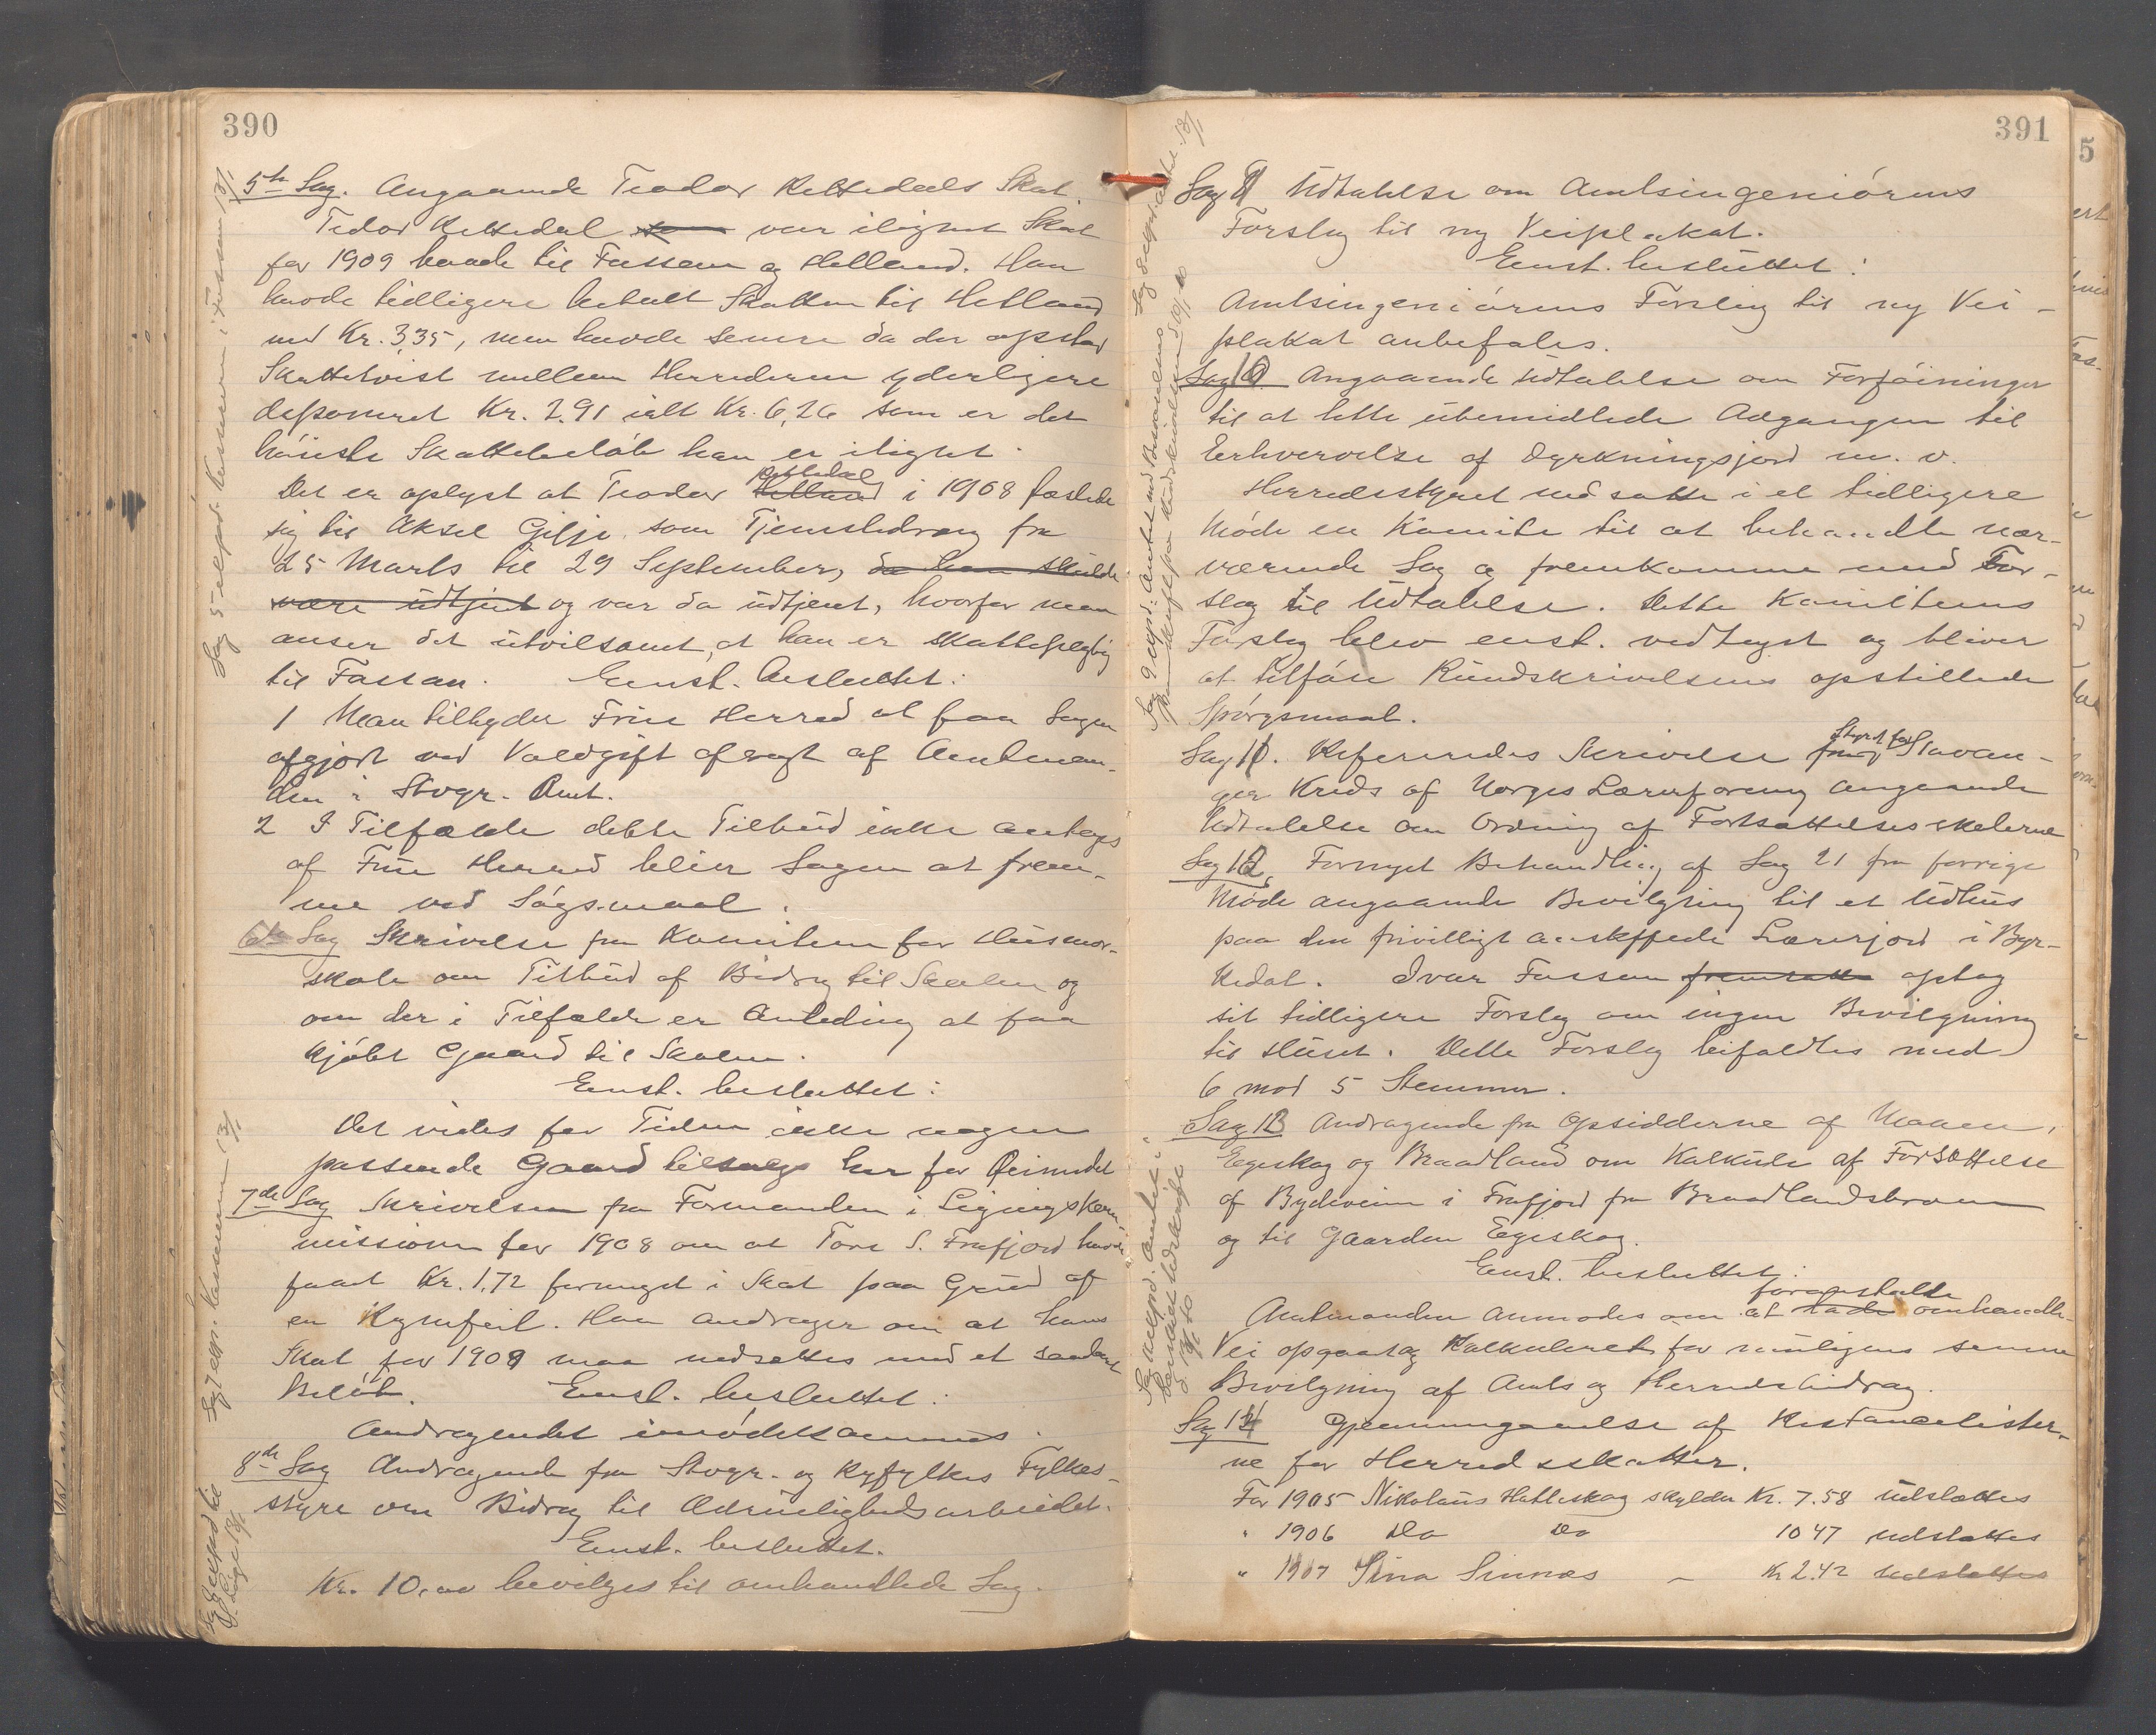 390
5te Sag. Angaaende Teodor Kettedals Skat.
Tedor Kettedal var ilignet Skat
for 1909 baade til Fossan og Helland. Han
havde tidligere betalt Skatten til Hetland
med Kr. 3,35, men havde senere da der opstod
Skattetvist mellem Herrederne yderligere
deponeret Kr. 2.91 ialt Kr. 6,26 som er det
høieste Skattebeløb han er ilignet.
Det er oplyst at Teodor Kettedal i 1908 fæstede
sig til Aksel Gilje som Tjenestedreng fra
25 Marts til 29 September, da han skulde
være udtjent og var da udtjent, hvorfor man
anser det utvilsomt, at han er skattepligtig
til Fossan. Enst. besluttet:
1 Man tilbyder Frue Herred at faa Sagen
afgjort ved Voldgift afsagt af Amtman-
den i Stvgr. Amt.
2 I Tilfælde dette Tilbud ikke antages
af Frue Herred bliver Sagen at frem-
me ved Søgsmaal.
6te Sag Skrivelse fra Komiteen for Husmor-
skole om Tilbud af Bidrag til Skolen og
om der i Tilfælde er Anledning at faa
kjøbt Gaard til Skolen.
Enst. besluttet:
Det vides for Tiden ikke nogen
passende Gaard tilsalgs her for Øiemedet
7de Sag Skrivelse fra Formanden i Ligningskom-
missionen for 1908 om at Tore S. Frafjord havde
faaet Kr. 1.72 formeget i Skat paa Grund af
en Regnefeil. Han andrager om at hans
Skat for 1909 maa nedsættes med et saadant
Beløb. Enst. besluttet:
Andragendet imødekommes.
8de Sag Andragende fra Stvgr. og Ryfylkes Fylkes-
styre om Bidrag til Ædruelighedsarbeidet.
Enst. besluttet.
Kr. 10,00 bevilges til omhandlede Sag.
Sag 5 exped. Kassereren i Fossan 13/1
Sag 7 exp. Kassereren 13/1
391
Sag 9 Udtalelse om Amtsingeniørens
Forslag til ny Veiplakat.
Enst. besluttet:
Amtsingeniørens Forslag til ny Vei-
plakat anbefales.
Sag 10 Angaaende Udtalelse om Forføininger
til at lette ubemidlede Adgangen til
Erhvervelse af Dyrkningsjord m. v.
Herredsstyret nedsatte i et tidligere
Møde en Komite til at behandle nær-
værende Sag og fremkomme med For-
slag til Udtalelse. Dette Komiteens
Forslag blev enst. vedtaget og bliver
at tilføie Rundskrivelsens opstillede
Spørgsmaal.
Sag 11. Refereredes Skrivelse fra Styret for Stavan-
ger Kreds af Norges Lærerforening angaaende
Udtalelse om Ordning af Fortsættelsesskolerne
Sag 12, Fornyet Behandling af Sag 21 fra forrige
Møde angaaende Bevilgning til et Udhus
paa den frivilligt anskffede Lærerjord i Byr-
kedal. Ivar Fossan fremsatte optog
sit tidligere Forslag om ingen Bevilgning
til Huset. Dette Forslag bifaldtes med
6 mod 5 Stemmer.
Sag 13 Andragende fra Opsidderne af Maaen,
Egeskog og Braadland om Kalkule af Forsættelse
af Bydeveien i Frafjord fra Braadlandsbroen
og til Gaarden Egeskog.
Enst. besluttet:
Amtmanden anmodes om at lade foranstalte omhandle-
Vei opgaat og Kalkuleret for muligens senere
Bevilgning af Amts og Herredsbidrag.
Sag 14 Gjennemgaaelse af Restancelister-
ne for Herredsskatter.
For 1905 Nikolaus Hatleskog skylder Kr. 7.58 udslættes
" 1906 Do Do 10 47 udslættes
" 1907 Sina Sinnæs – Kr 2.42 udslættes
5